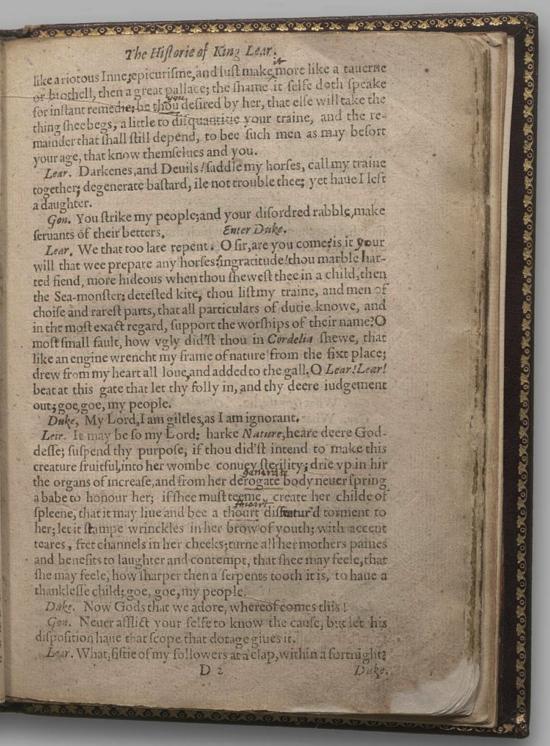 The Historie of King Lear.
it
like a riotous Inne; epicurisme, and lust make more like a tauerne
or brothell, then a great pallace; the shame it selfe doth speake
for instant remedie: be thou desired by her, that else will take the
thing shee begs, a little to disquantitie your traine, and the re-
mainder that shall still depend, to bee such men as may besort
your age, that know themselues and you.
Lear. Darkenes, and Deuils! saddle my horses, call my traine
together; degenerate bastard, ile not trouble thee; yet haue I left
a daughter.
Gon. You strike my people; and your disordred rabble, make
seruants of their betters. Enter Duke.
Lear, We that too late repent. O sir, are you come; is it your
will that wee prepare any horses? ingratitude! thou marble har-
ted fiend, more hideous when thou shewest thee in a child, then
the Sea-monster; detested kite, thou list my traine, and men of
choise and rarest parts, that all particulars of dutie knowe, and
in the most exact regard, support the worships of their name? O
most small fault, how vgly did'st thou in Cordelia shewe, that
like an engine wrencht my frame of nature from the fixt place;
drew from my heart all loue, and added to the gall, O Lear! Lear!
beat at this gate that let thy folly in, and thy deere iudgement
out; goe, goe, my people.
Duke, My Lord, I am giltles, as I am ignorant.
Leir. It may be so my Lord; harke Nature, heare deere God-
desse; suspend thy purpose, if thou did'st intend to make this
creature fruitful, into her wombe conuey sterility; drie vp in hir
the organs of increase, and from her derogate body neuer spring
a babe to honour her; if shee must teeme, create her childe of
spleene, that it may liue and bee a thourt disnatur'd torment to
her; let it stampe wrinckles in her brow of youth; with accent
teares, fret channels in her cheeks; turne all her mothers paines
and benefits to laughter and contempt, that shee may feele, that
she may feele, how sharper then a serpents tooth it is, to haue a
thanklesse child; goe, goe, my people.
Duke. Now Gods that we adore, whereof comes this!
Gon. Neuer afflict your selfe to know the cause, but let his
disposition haue that scope that dotage giues it.
Lear. What, fiftie of my followers at a clap, within a fortnight?
D 2 Duke.